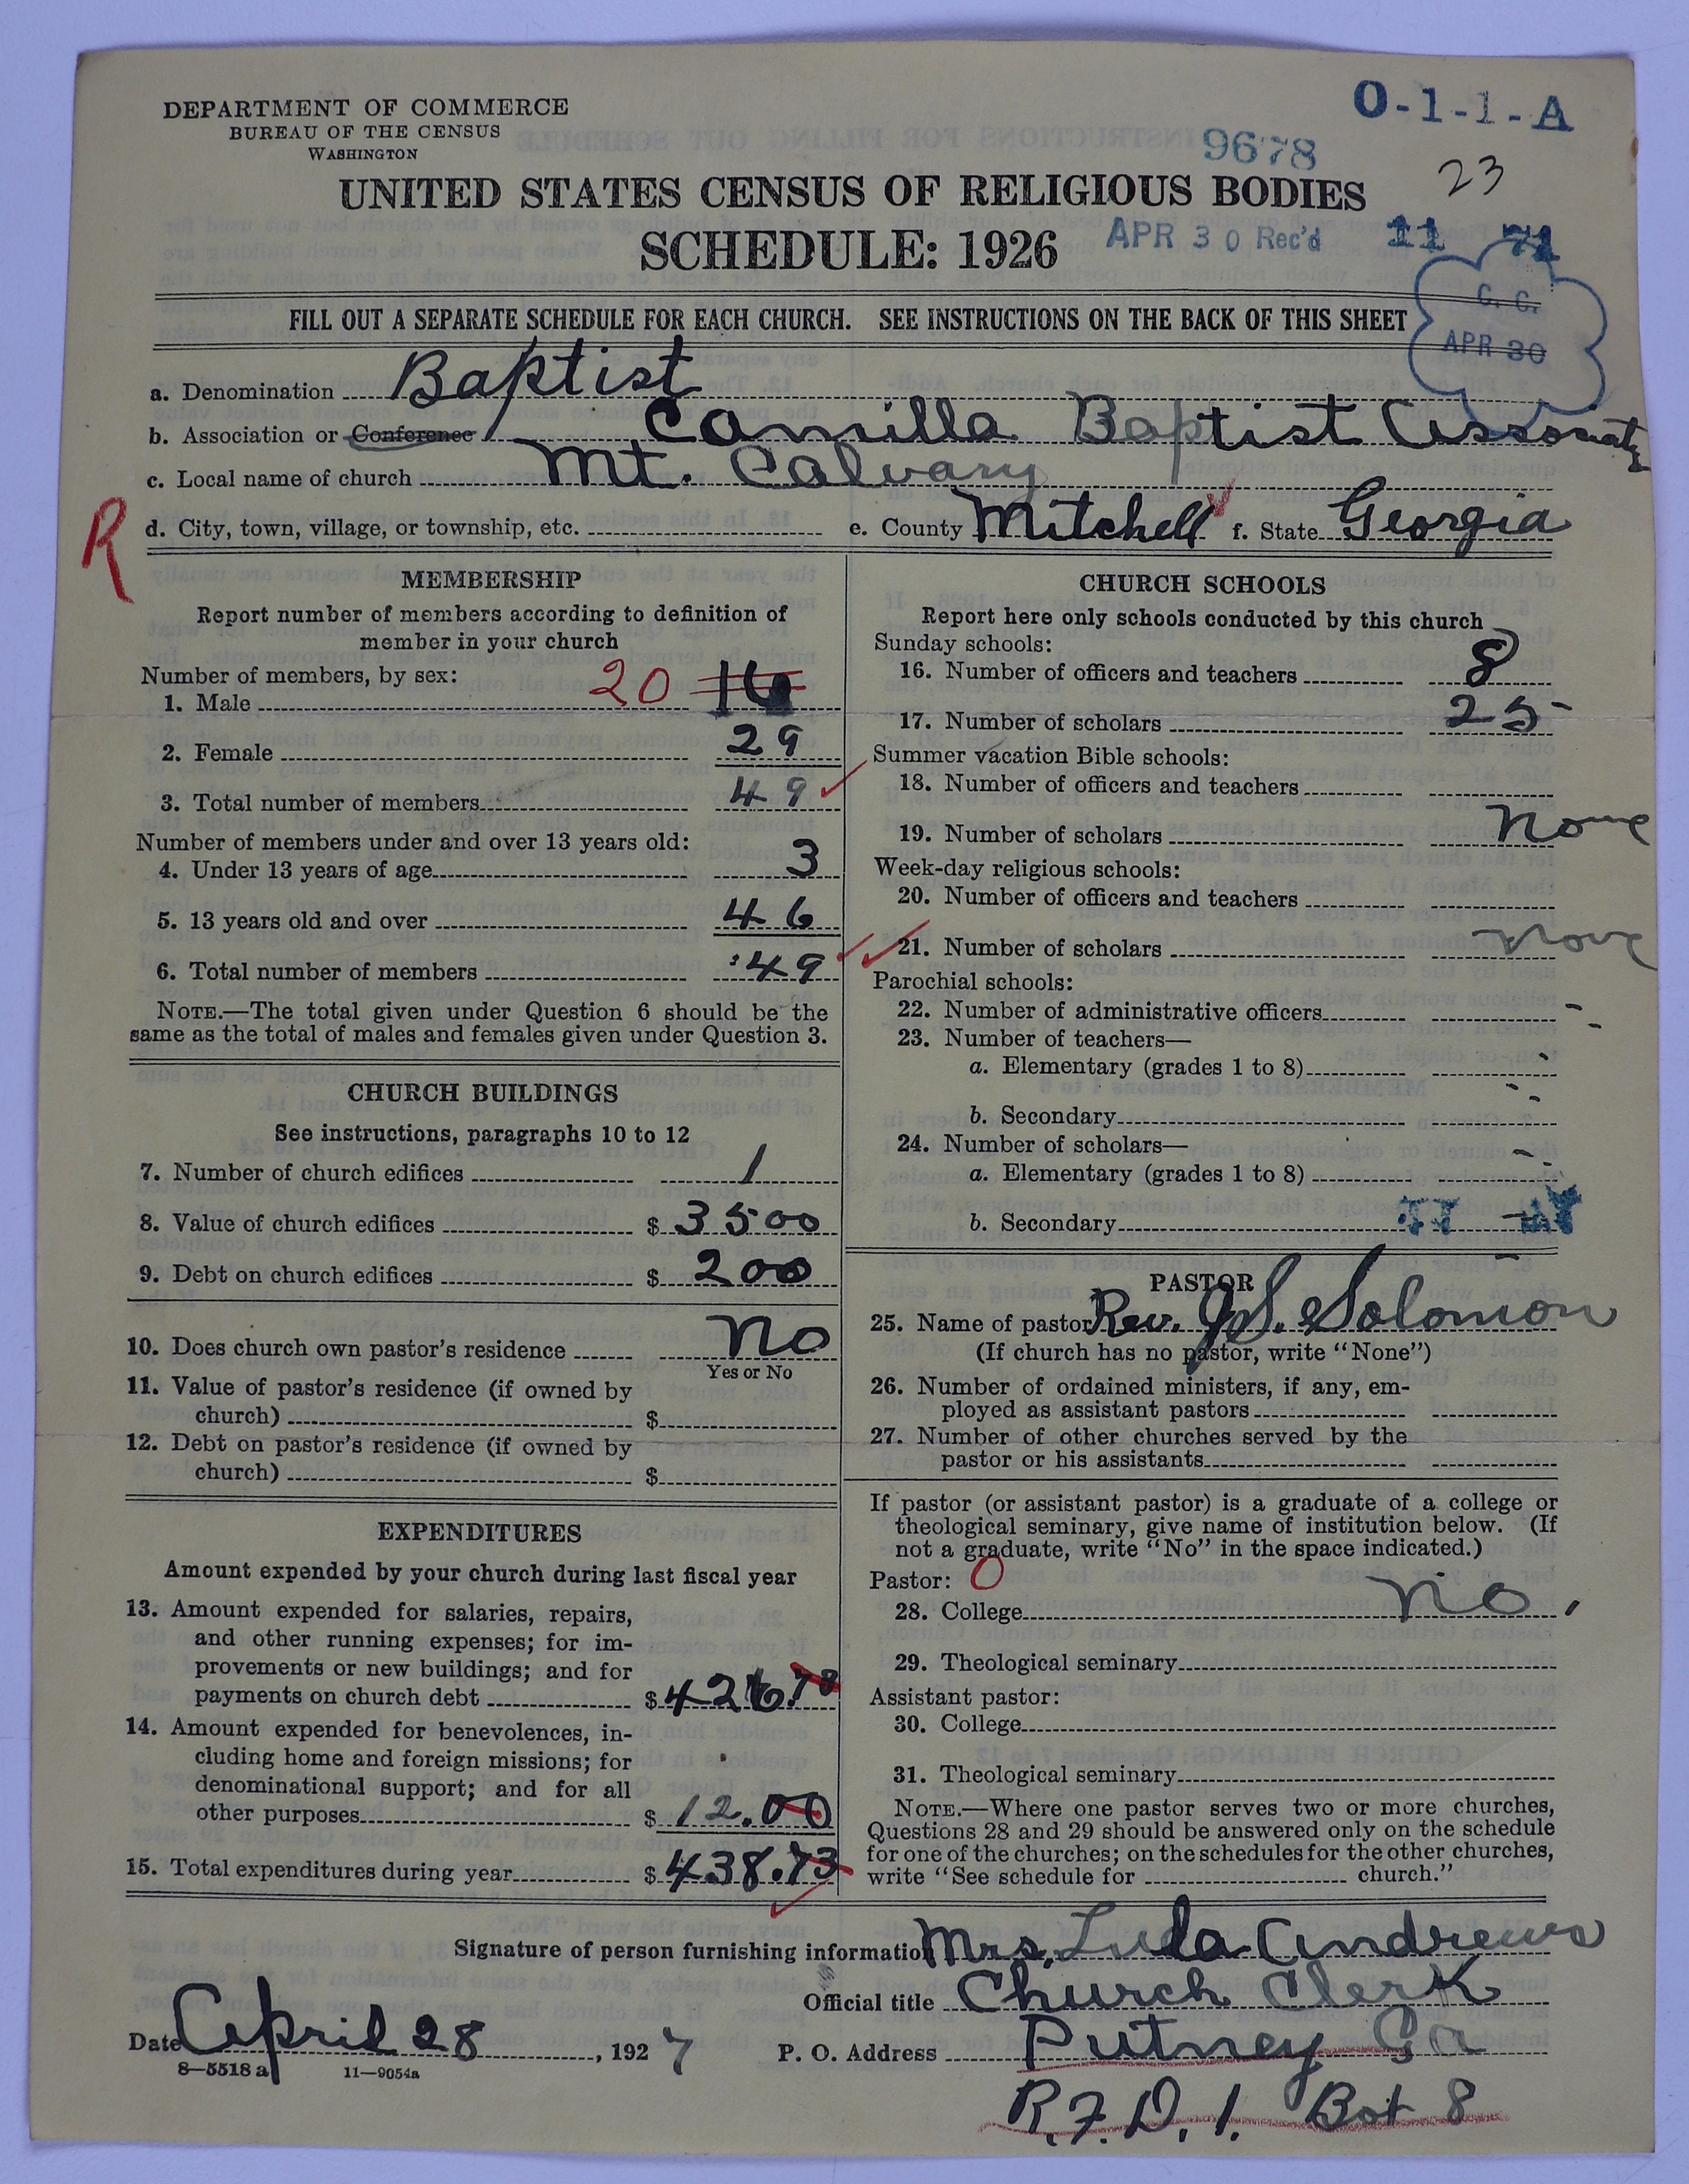 DEPARTMENT OF COMMERCE
BUREAU OF THE CENSUS
WASHINGTON
O-1-1-A
9678
23
UNITED STATES CENSUS OF RELIGIOUS BODIES
SCHEDULE: 1926
APR 30 Rec'd
11 71
C. C.
APR 30
FILL OUT A SEPARATE SCHEDULE FOR EACH CHURCH. SEE INSTRUCTIONS ON THE BACK OF THIS SHEET
a. Denomination Baptist
b. Association or Conference Camilla Baptist
c. Local name of church Mt. Calvary
R
d. City, town, village, or township, etc. e. County Mitchell f. State Georgia
MEMBERSHIP
Report number of members according to definition of
member in your church
Number of members, by sex:
1. Male 20 16
2. Female 29
3. Total number of members 49
Number of members under and over 13 years old:
4. Under 13 years of age 3
5. 13 years old and over 46
6. Total number of members 49
NOTE.—The total given under Question 6 should be the
same as the total of males and females given under Question 3.
CHURCH BUILDINGS
See instructions, paragraphs 10 to 12
7. Number of church edifices 1
8. Value of church edifices $ 3500
9. Debt on church edifices $ 200
10. Does church own pastor's residence No
Yes or No
11. Value of pastor's residence (if owned by
church) $
12. Debt on pastor's residence (if owned by
church) $
EXPENDITURES
Amount expended by your church during last fiscal year
13. Amount expended for salaries, repairs,
and other running expenses; for im-
provements or new buildings; and for
payments on church debt $ 426.73
14. Amount expended for benevolences, in-
cluding home and foreign missions; for
denominational support; and for all
other purposes $ 12.00
15. Total expenditures during year $ 438.73
CHURCH SCHOOLS
Report here only schools conducted by this church
Sunday schools:
16. Number of officers and teachers 8
17. Number of scholars 25
Summer vacation Bible schools:
18. Number of officers and teachers
19. Number of scholars None
Week-day religious schools:
20. Number of officers and teachers
21. Number of scholars None
Parochial schools:
22. Number of administrative officers
23. Number of teachers—
a. Elementary (grades 1 to 8)
b. Secondary
24. Number of scholars—
a. Elementary (grades 1 to 8)
b. Secondary
PASTOR
25. Name of pastor Rev. J. S. Solomon
(If church has no pastor, write "None")
26. Number of ordained ministers, if any, em-
ployed as assistant pastors
27. Number of other churches served by the
pastor or his assistants
If pastor (or assistant pastor) is a graduate of a college or
theological seminary, give name of institution below. (If
not a graduate, write "No" in the space indicated.)
Pastor: 0
28. College No.
29. Theological seminary
Assistant pastor:
30. College
31. Theological seminary
NOTE.—Where one pastor serves two or more churches,
Questions 28 and 29 should be answered only on the schedule
for one of the churches; on the schedules for the other churches,
write "See schedule for church."
Signature of person furnishing information Mrs. Lula Andrews
Official title Church Clerk
Date April 28, 1927 P. O. Address Putney Ga
8—5518 a 11—9054a
R.F.D. 1. Box 8